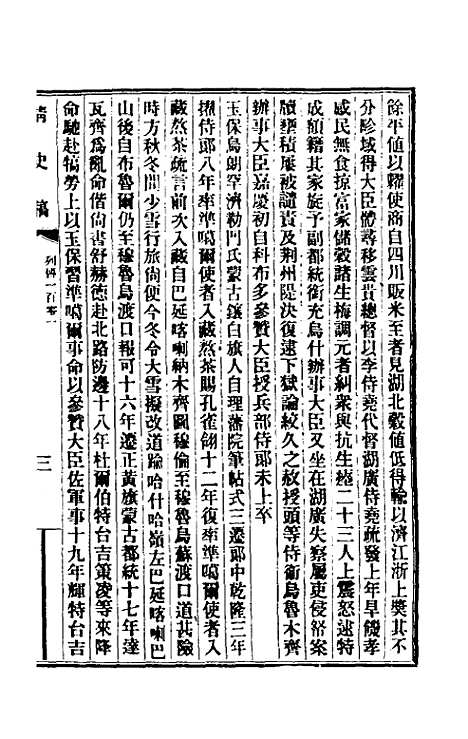 餘平値以糶使商自四川販米至者見湖北穀値低得輸以濟江浙上獎其不
分畛域得大臣體尋移雲貴總督以李侍堯代督湖廣侍堯疏發上年旱饑孝
感民無食掠富家儲穀諸生梅調元者糾衆與抗生瘞二十三人上震怒逮特
成額籍其家旋予副都統銜充烏什辦事大臣又坐在湖廣失察屬吏侵帑案
牘壅積屢被譴責及荆州隄決復逮下獄論絞久之赦授頭等侍衞烏魯木齊
辦事大臣嘉慶初自科布多參贊大臣授兵部侍郞未上卒
玉保烏朗罕濟勒門氏蒙古鑲白旗人自理藩院筆帖式三遷郞中乾隆三年
擢侍郞八年率準噶爾使者入藏熬茶賜孔雀翎十二年復率準噶爾使者入
藏熬茶疏言前次入藏自巴延喀喇納木齊圖穆倫至穆魯烏蘇渡口道甚險
時方秋冬間少雪行旅尙便今冬令大雪擬改道踰哈什哈嶺左巴延喀喇巴
山後自布魯爾仍至穆魯烏渡口報可十六年遷正黃旗蒙古都統十七年達
瓦齊爲亂命偕尙書舒赫德赴北路防邊十八年杜爾伯特台吉策凌等來降
命馳赴犒勞上以玉保習準噶爾事命以參贊大臣佐軍事十九年輝特台吉
清史稿 列傳一百零一 三